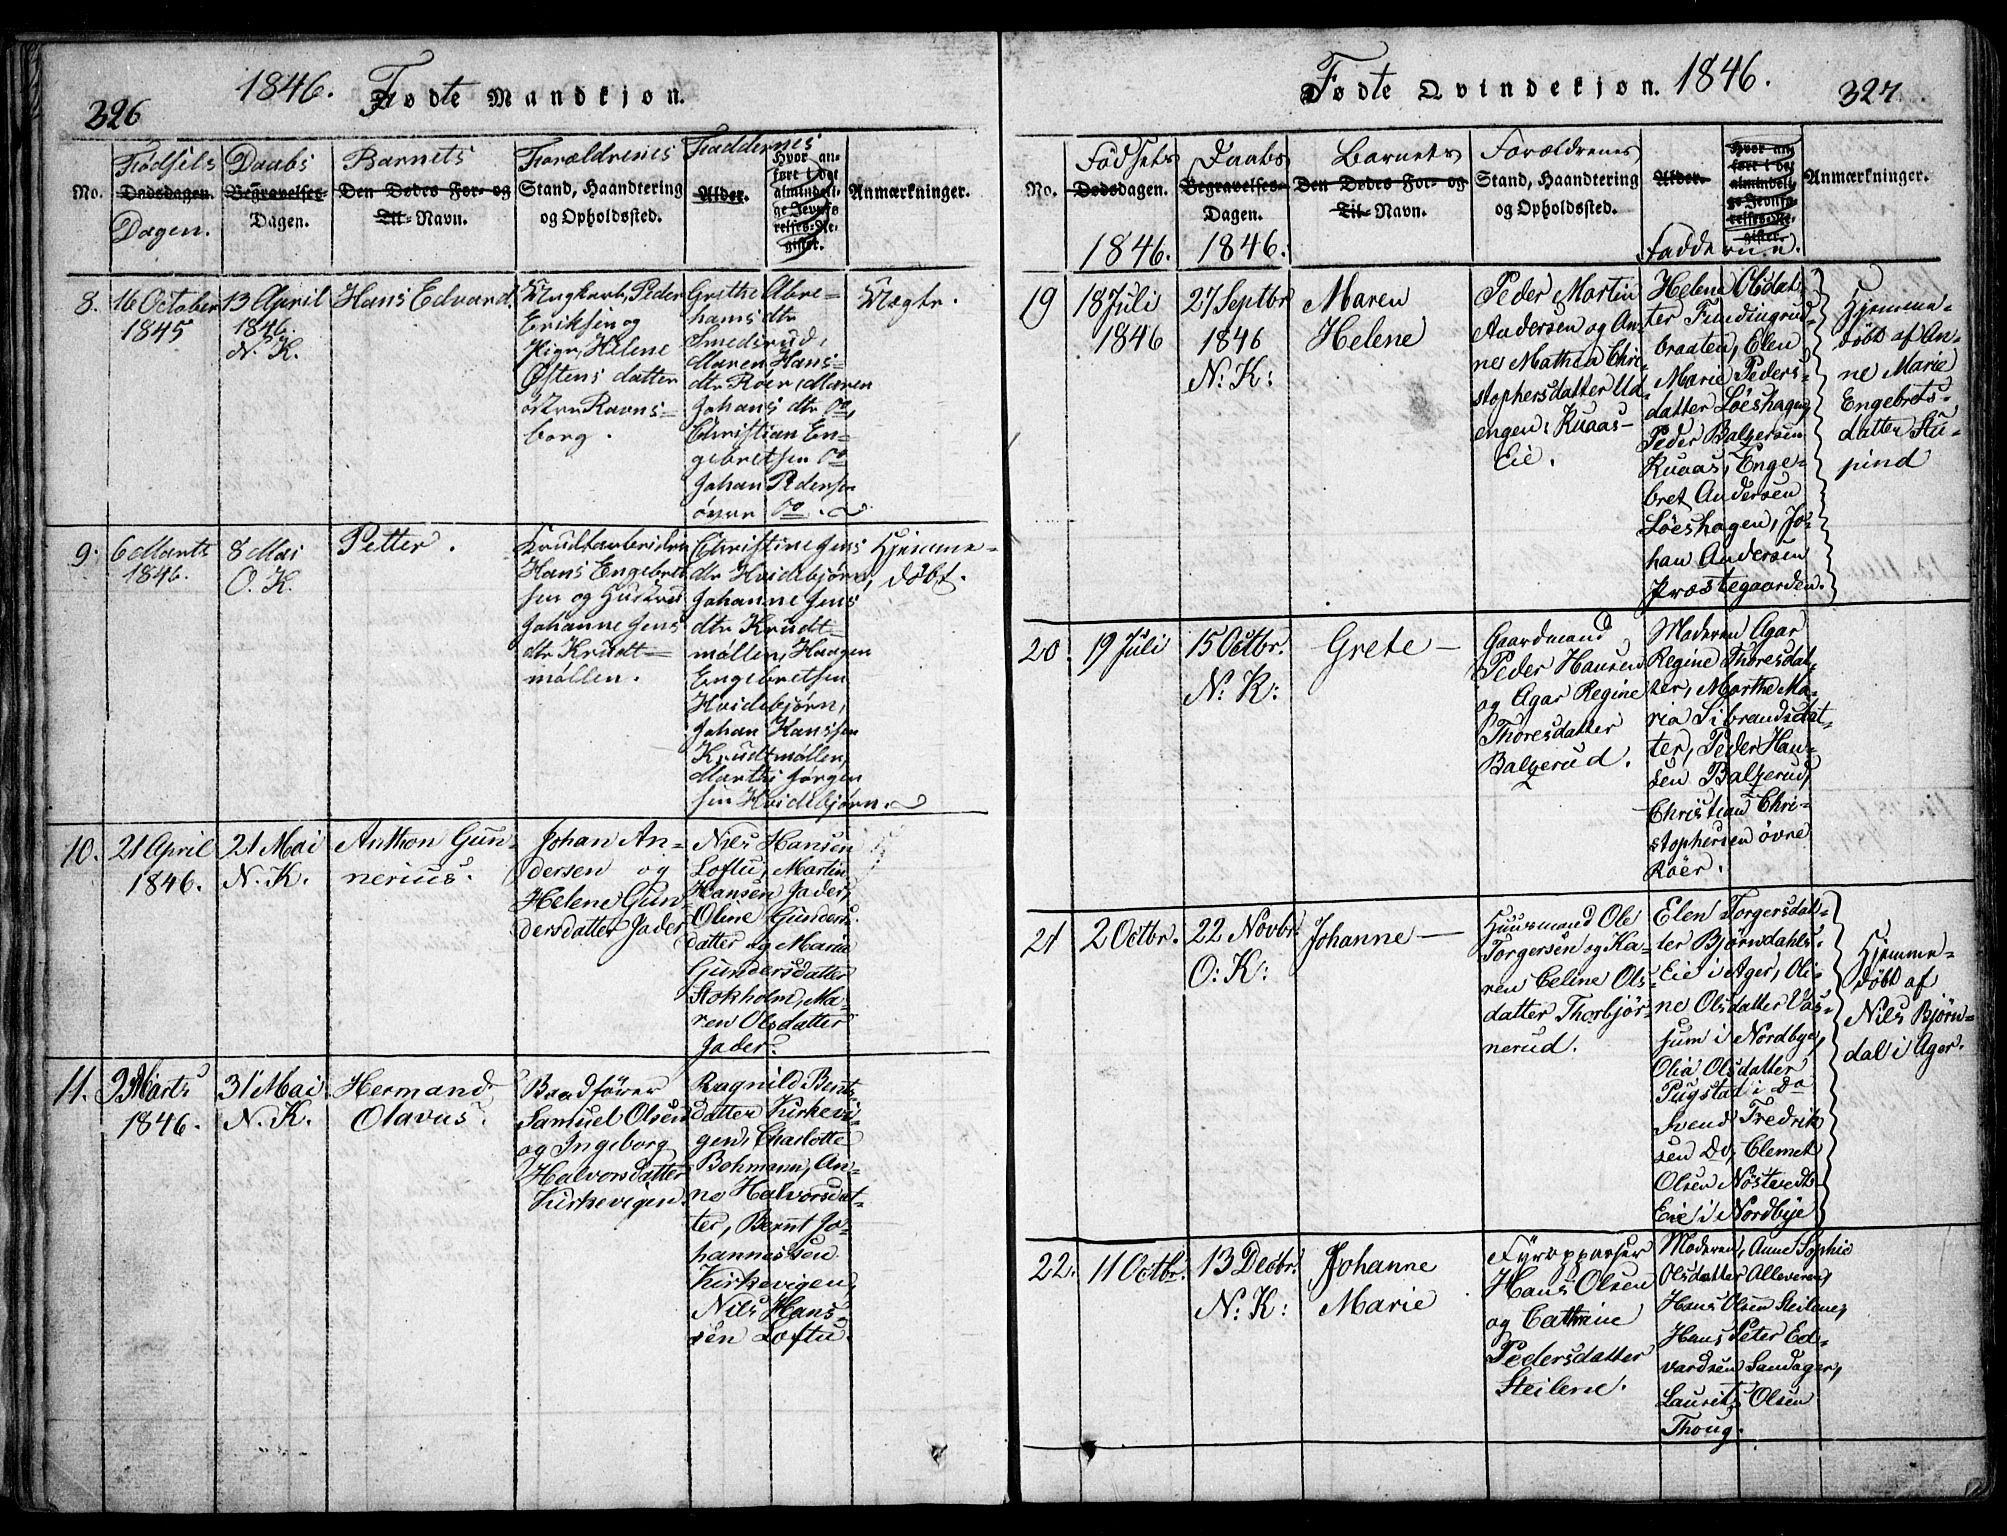 326
1846. Fødte Mandkjøn.
No.
Fødsels
Dødsdagen.
Dagen.
Daabs
Begravelses-
Dagen.
Barnets
Den Dødes For- og
Til-Navn.
Forældrenes
Stand, Haandtering
og Opholdssted.
Faddernes
Alder.
Hvor an-
ført i det
almindeli-
ge Jevnfø-
relses-Re-
gister.
Anmærkninger.
8.
16 October
1845
13 April
1846.
N. K.
Hans Edvard.
Ungkarl, Peder
Eriksen og
Pige, Helene
Østens datter
østre Ravns-
borg.
Grethe Abra-
hams dtr
Smedsrud,
Maren Hans-
dtr Røer, Maren
Johans dtr Do,
Christian En-
gebretsen Do
Johan Pedersen
øvre Do.
Uægte.
9.
6 Marts
1846.
8 Mai
O. K.
Petter.
Krudtarbeider
Hans Engebret
sen og Hustru
Johanne Jens
dtr Krudt-
møllen.
Christine Jens
dtr Hvidebjørn,
Johanne Jens
dtr Krudt-
møllen, Haagen
Engebretsen
Hvidebjørn,
Johan Hanssen
Krudtmøllen,
Marthi Jørgen
sen Hvidebjørn.
Hjemme-
døbt.
10.
21 April
1846.
21 Mai
N. K.
Anthon Gun-
nerius.
Johan An-
dersen og
Helene Gun-
dersdatter Jader
Nils Hansen
Loftu, Martin
Hansen Jader,
Oline Gunders-
datter og Maria
Gundersdatter
Stokholm, Ma-
ren Olsdatter
Jader.
11.
9 Marts
1846.
31 Mai
N. K.
Hermand
Olavus.
Baadfører
Samuel Olsen
og Ingeborg
Halvorsdatter
Kirkevigen.
Ragnild Bents
datter Kirkevi-
gen, Charlotte
Bohmann, An-
ne Halvorsdat-
ter, Bernt Jo-
hannessen
Kirkevigen,
Nils Hans-
sen Loftu
Fødte Qvindekjøn. 1846.
327.
No.
Fødsels
Dødsdagen.
1846.
Daabs
Begravelses-
Dagen.
1846.
Barnets
Den Dødes For- og
Til-Navn.
Forældrenes
Stand, Haandtering
og Opholdssted.
Alder.
Hvor an-
ført i det
almindeli-
ge Jevnfø-
relses-Re-
gister.
Fadderne.
Anmærkninger.
19
18 Juli
1846
27 Septbr
1846
N: K:
Maren
Helene
Peder Martin
Andersen og An-
ne Mathea Chri-
stophersdatter Ud-
engen, Kuaas-
Eie.
Helene Olsdat-
ter Findingrud-
braaten, Elen
Marie Peders-
datter Løeshagen,
Peder Balzersen
Kuaas, Enge-
bret Andersen
Løeshagen, Jo-
han Andersen
Præstegaarden.
Hjemme-
døbt af An-
ne Marie
Engebrets-
datter Stu-
pind
20.
19 Juli
15 Octbr.
N: K:
Grete —
Gaardmand
Peder Hansen
og Agar Regine
Thoresdatter
Balzerud.
Moderen Agar
Regine Thoresdat-
ter, Marthe Ma-
ria Sibrandsdat-
ter, Peder Han-
sen Balzerud,
Christian Chri-
stophersen øvre
Røer.
21
2 Octbr.
22 Novbr.
O: K:
Johanne —
Huusmand Ole
Torgersen og Ka-
ren Celine Ols-
datter Thorbjør-
nerud.
Elen Torgersdat-
ter Bjørndahls-
Eie i Ager, Oli-
ne Olsdatter Vas-
sum i Nordbye,
Olia Olsdatter
Pugstad i Do
Svend Fredrik
sen Do, Clemet
Olsen Nøstvedt-
Eie i Nordbye
Hjemme-
døbt af
Nils Bjørn-
dal i Ager.
22.
11 Octbr.
13 Decbr.
N: K:
Johanne
Marie
Fyropparser
Hans Olsen
og Cathrine
Pedersdatter
Steilene.
Moderen, Anne Sophie
Olsdatter Alleveren,
Hans Olsen Steilene,
Hans Peter Ed-
vardsen Sandager,
Laurits Olsen
Thoug.